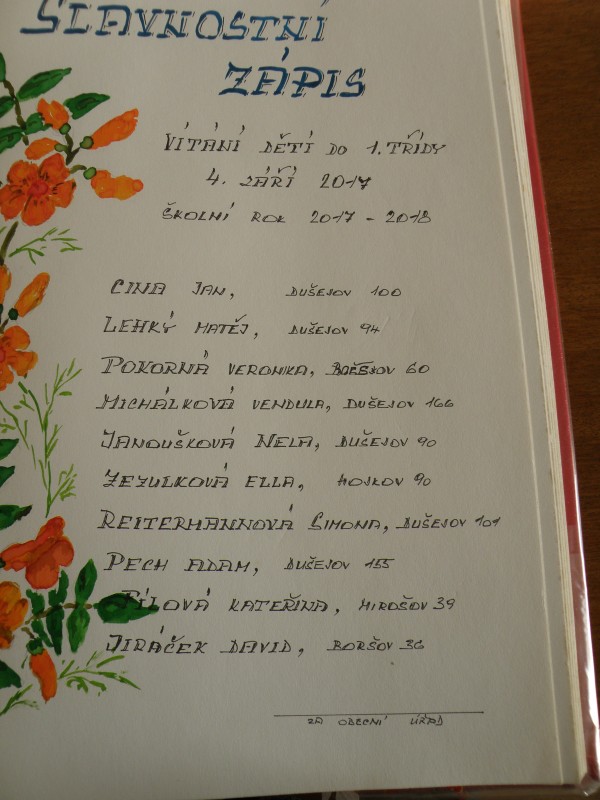 SLAVNOSTNÍ
ZÁPIS
VÍTÁNÍ DĚTÍ DO 1. TŘÍDY
4. ZÁŘÍ 2017
ŠKOLNÍ ROK 2017 - 2018
CINA JAN, DUŠEJOV 100
LEHKÝ MATĚJ, DUŠEJOV 94
POKORNÁ VERONIKA, 60
MICHÁLKOVÁ VENDULA, DUŠEJOV 166
JANOUŠKOVÁ NELA, DUŠEJOV 90
ZEZULKOVÁ ELLA, HOJKOV 90
REITERMANNOVÁ SIMONA, DUŠEJOV 101
PECH ADAM, DUŠEJOV 155
PÍLOVÁ KATEŘINA, MIROŠOV 39
JIRÁČEK DAVID, BORŠOV 36
ZA OBECNÍ ÚŘAD